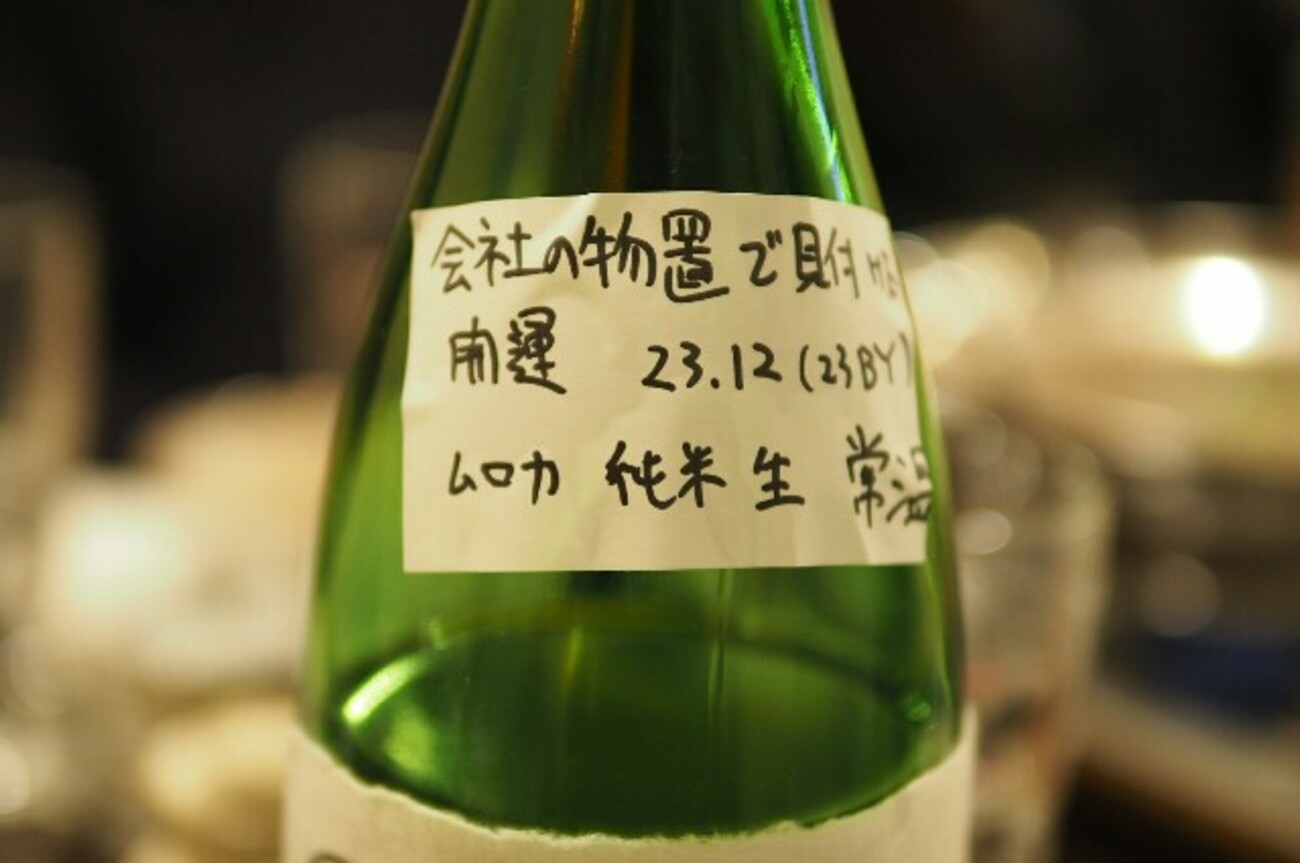 会社の物置で見付
開運 23.12 (23BY)
ムロカ 純米 生 常温